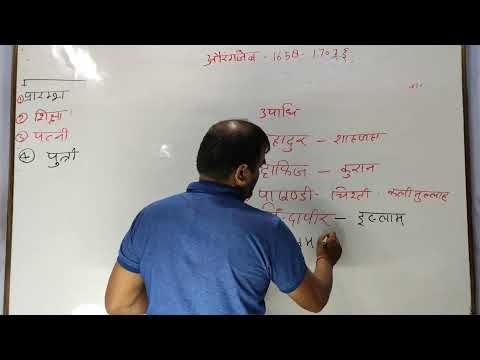 औरंगजेब - 1658 - 1707 ई.
① प्रारम्भ
② शिक्षा
③ पत्नी
④ पुत्री
उपाधि
हादुर - शाहजहा
हाफिज - कुरान
पाखण्डी - चिश्ती कलीमुल्लाह
दापीर - इस्लाम